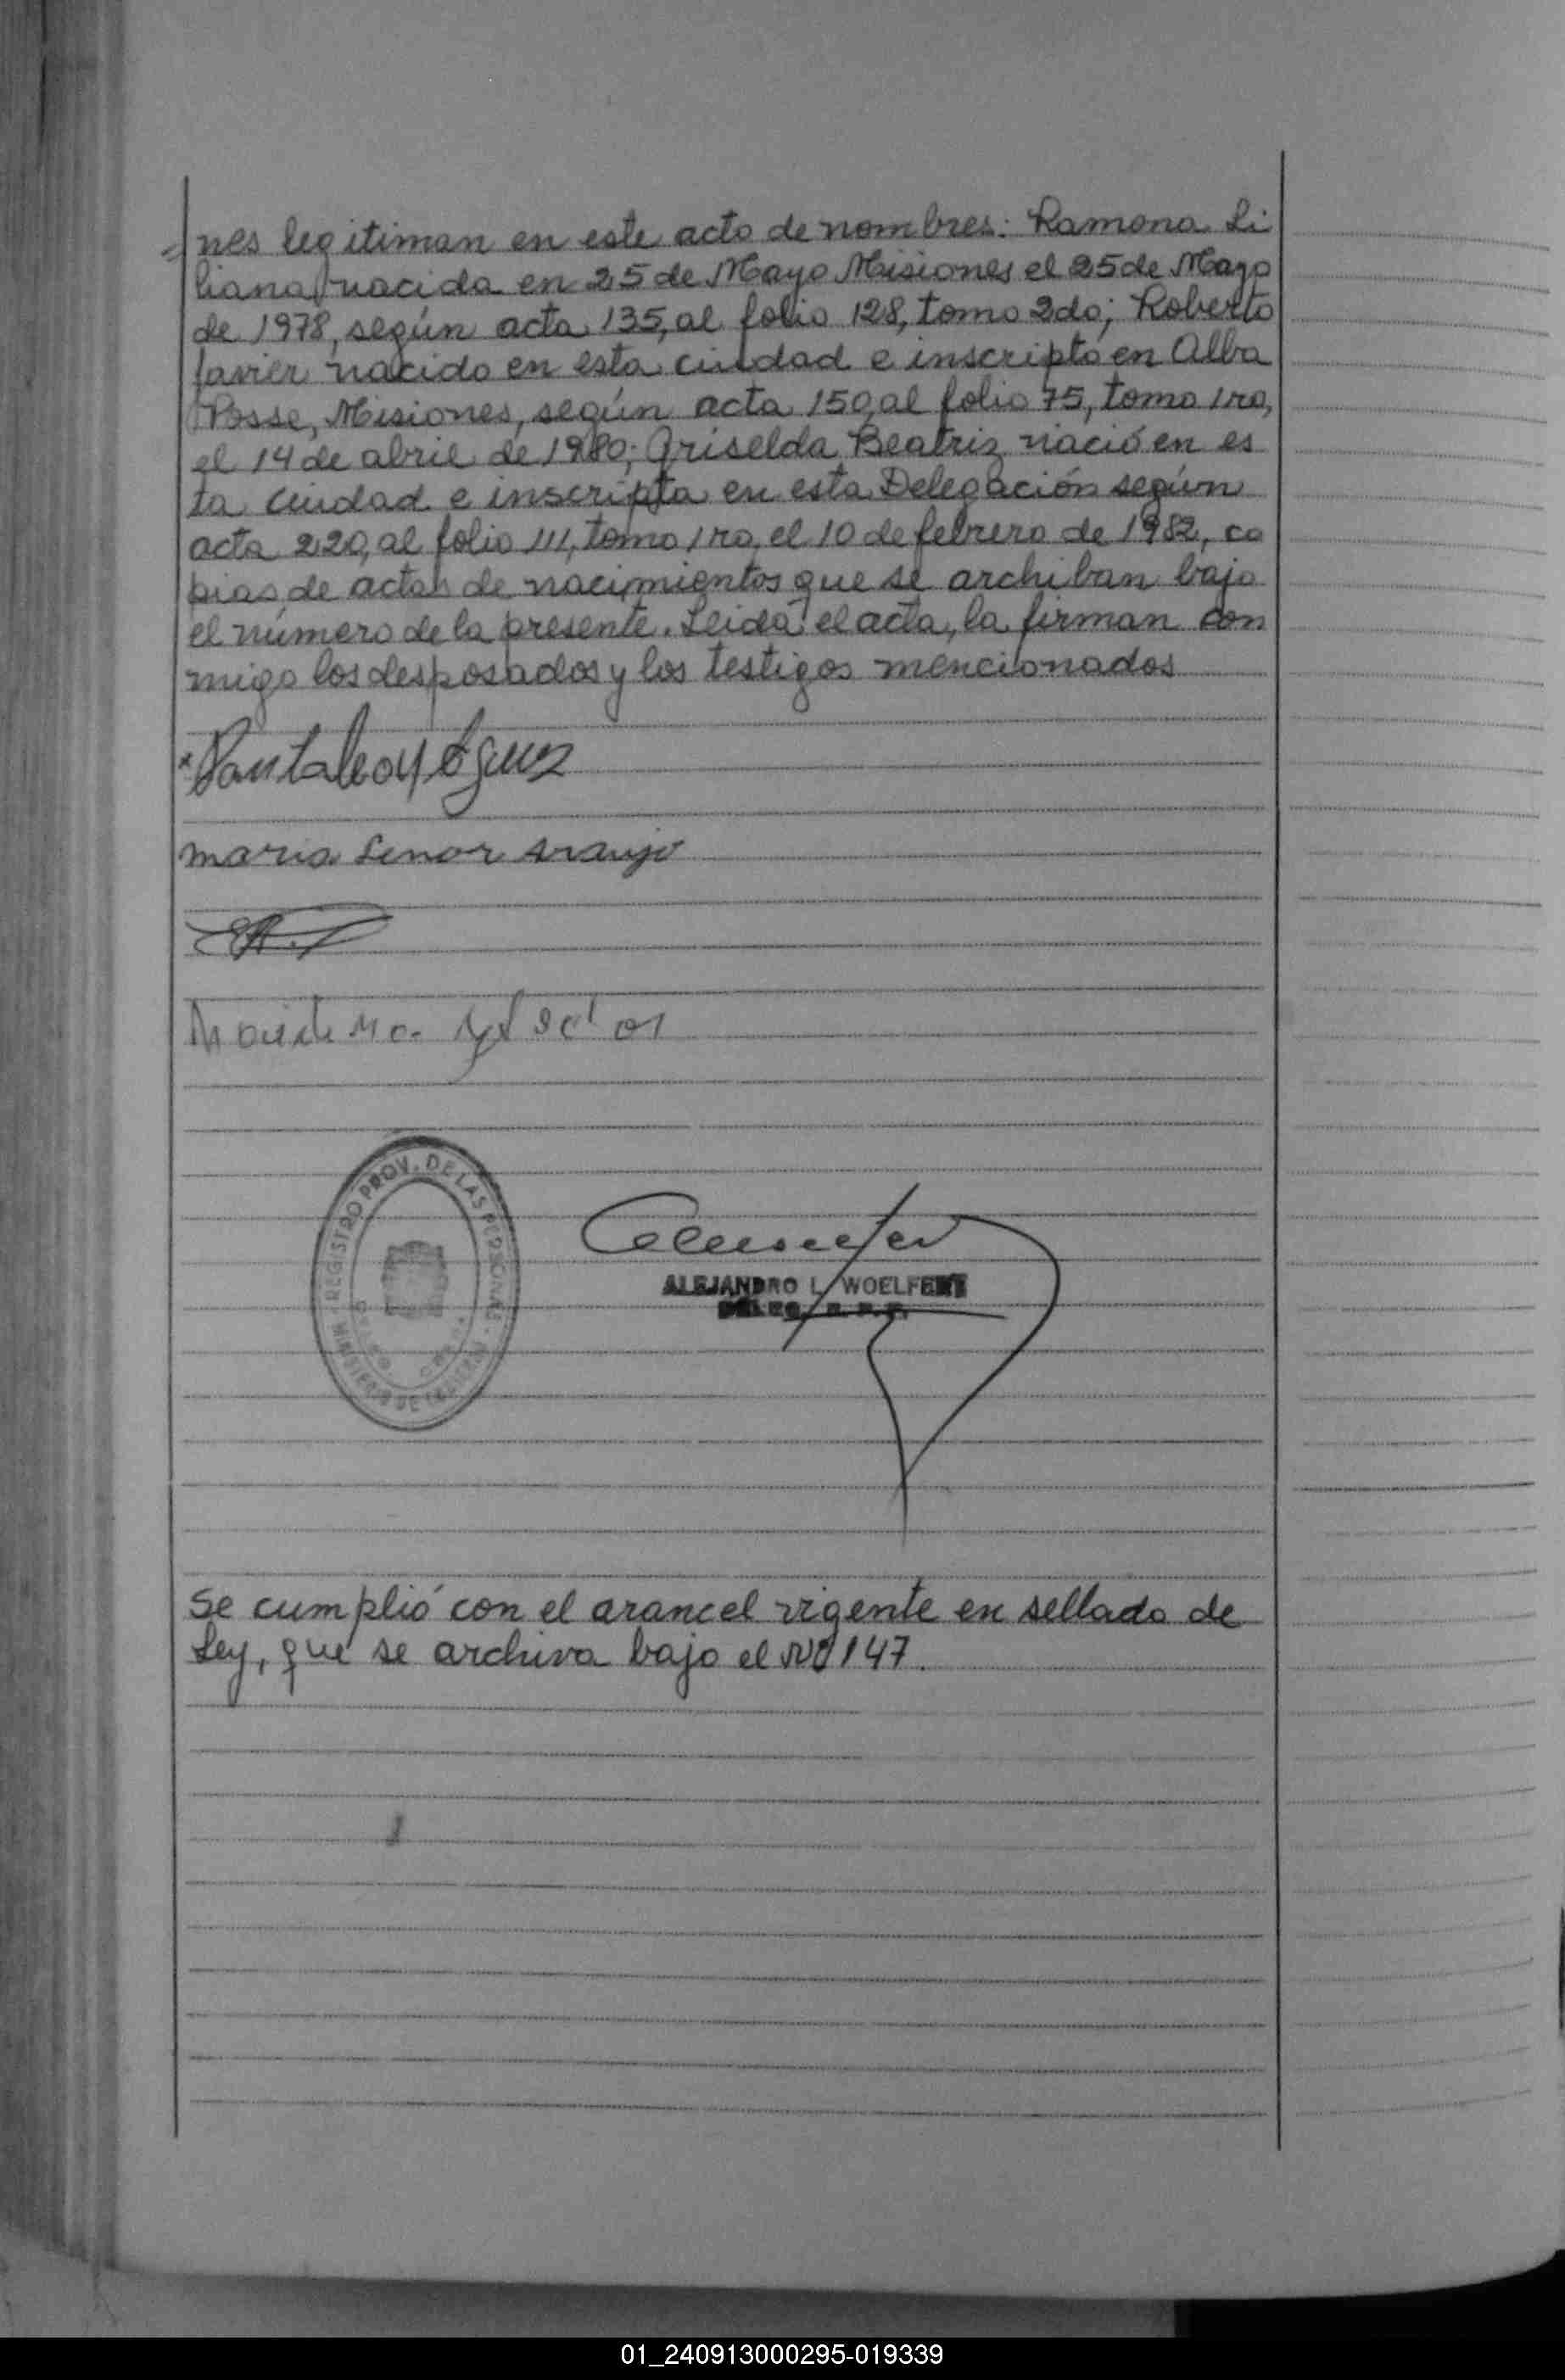 nes legitiman en este acto de nombres: Ramona Li
liana, nacida en 25 de Mayo Misiones el 25 de Mayo
de 1978, según acta 135, al folio 128, tomo 2do; Roberto
Javier nacido en esta ciudad e inscripto en Alba
Posse, Misiones, según acta 150, al folio 75, tomo 1ro,
el 14 de abril de 1980; Griselda Beatriz nació en es
ta ciudad e inscripta en esta Delegación según
acta 220, al folio 111, tomo 1ro, el 10 de febrero de 1982, co
pias de actas de nacimientos que se archiban bajo
el número de la presente. Leida el acta, la firman con
migo los desposados y los testigos mencionados
Pantaleon
maria Lenor Araujo
REGISTRO PROV. DE LAS PERSONAS
MINISTERIO DE GOBIERNO
ALEJANDRO L. WOELFERT
DELEG. R. P. P.
Se cumplió con el arancel vigente en sellado de
Ley, que se archiva bajo el Nº 147.
01_240913000295-019339